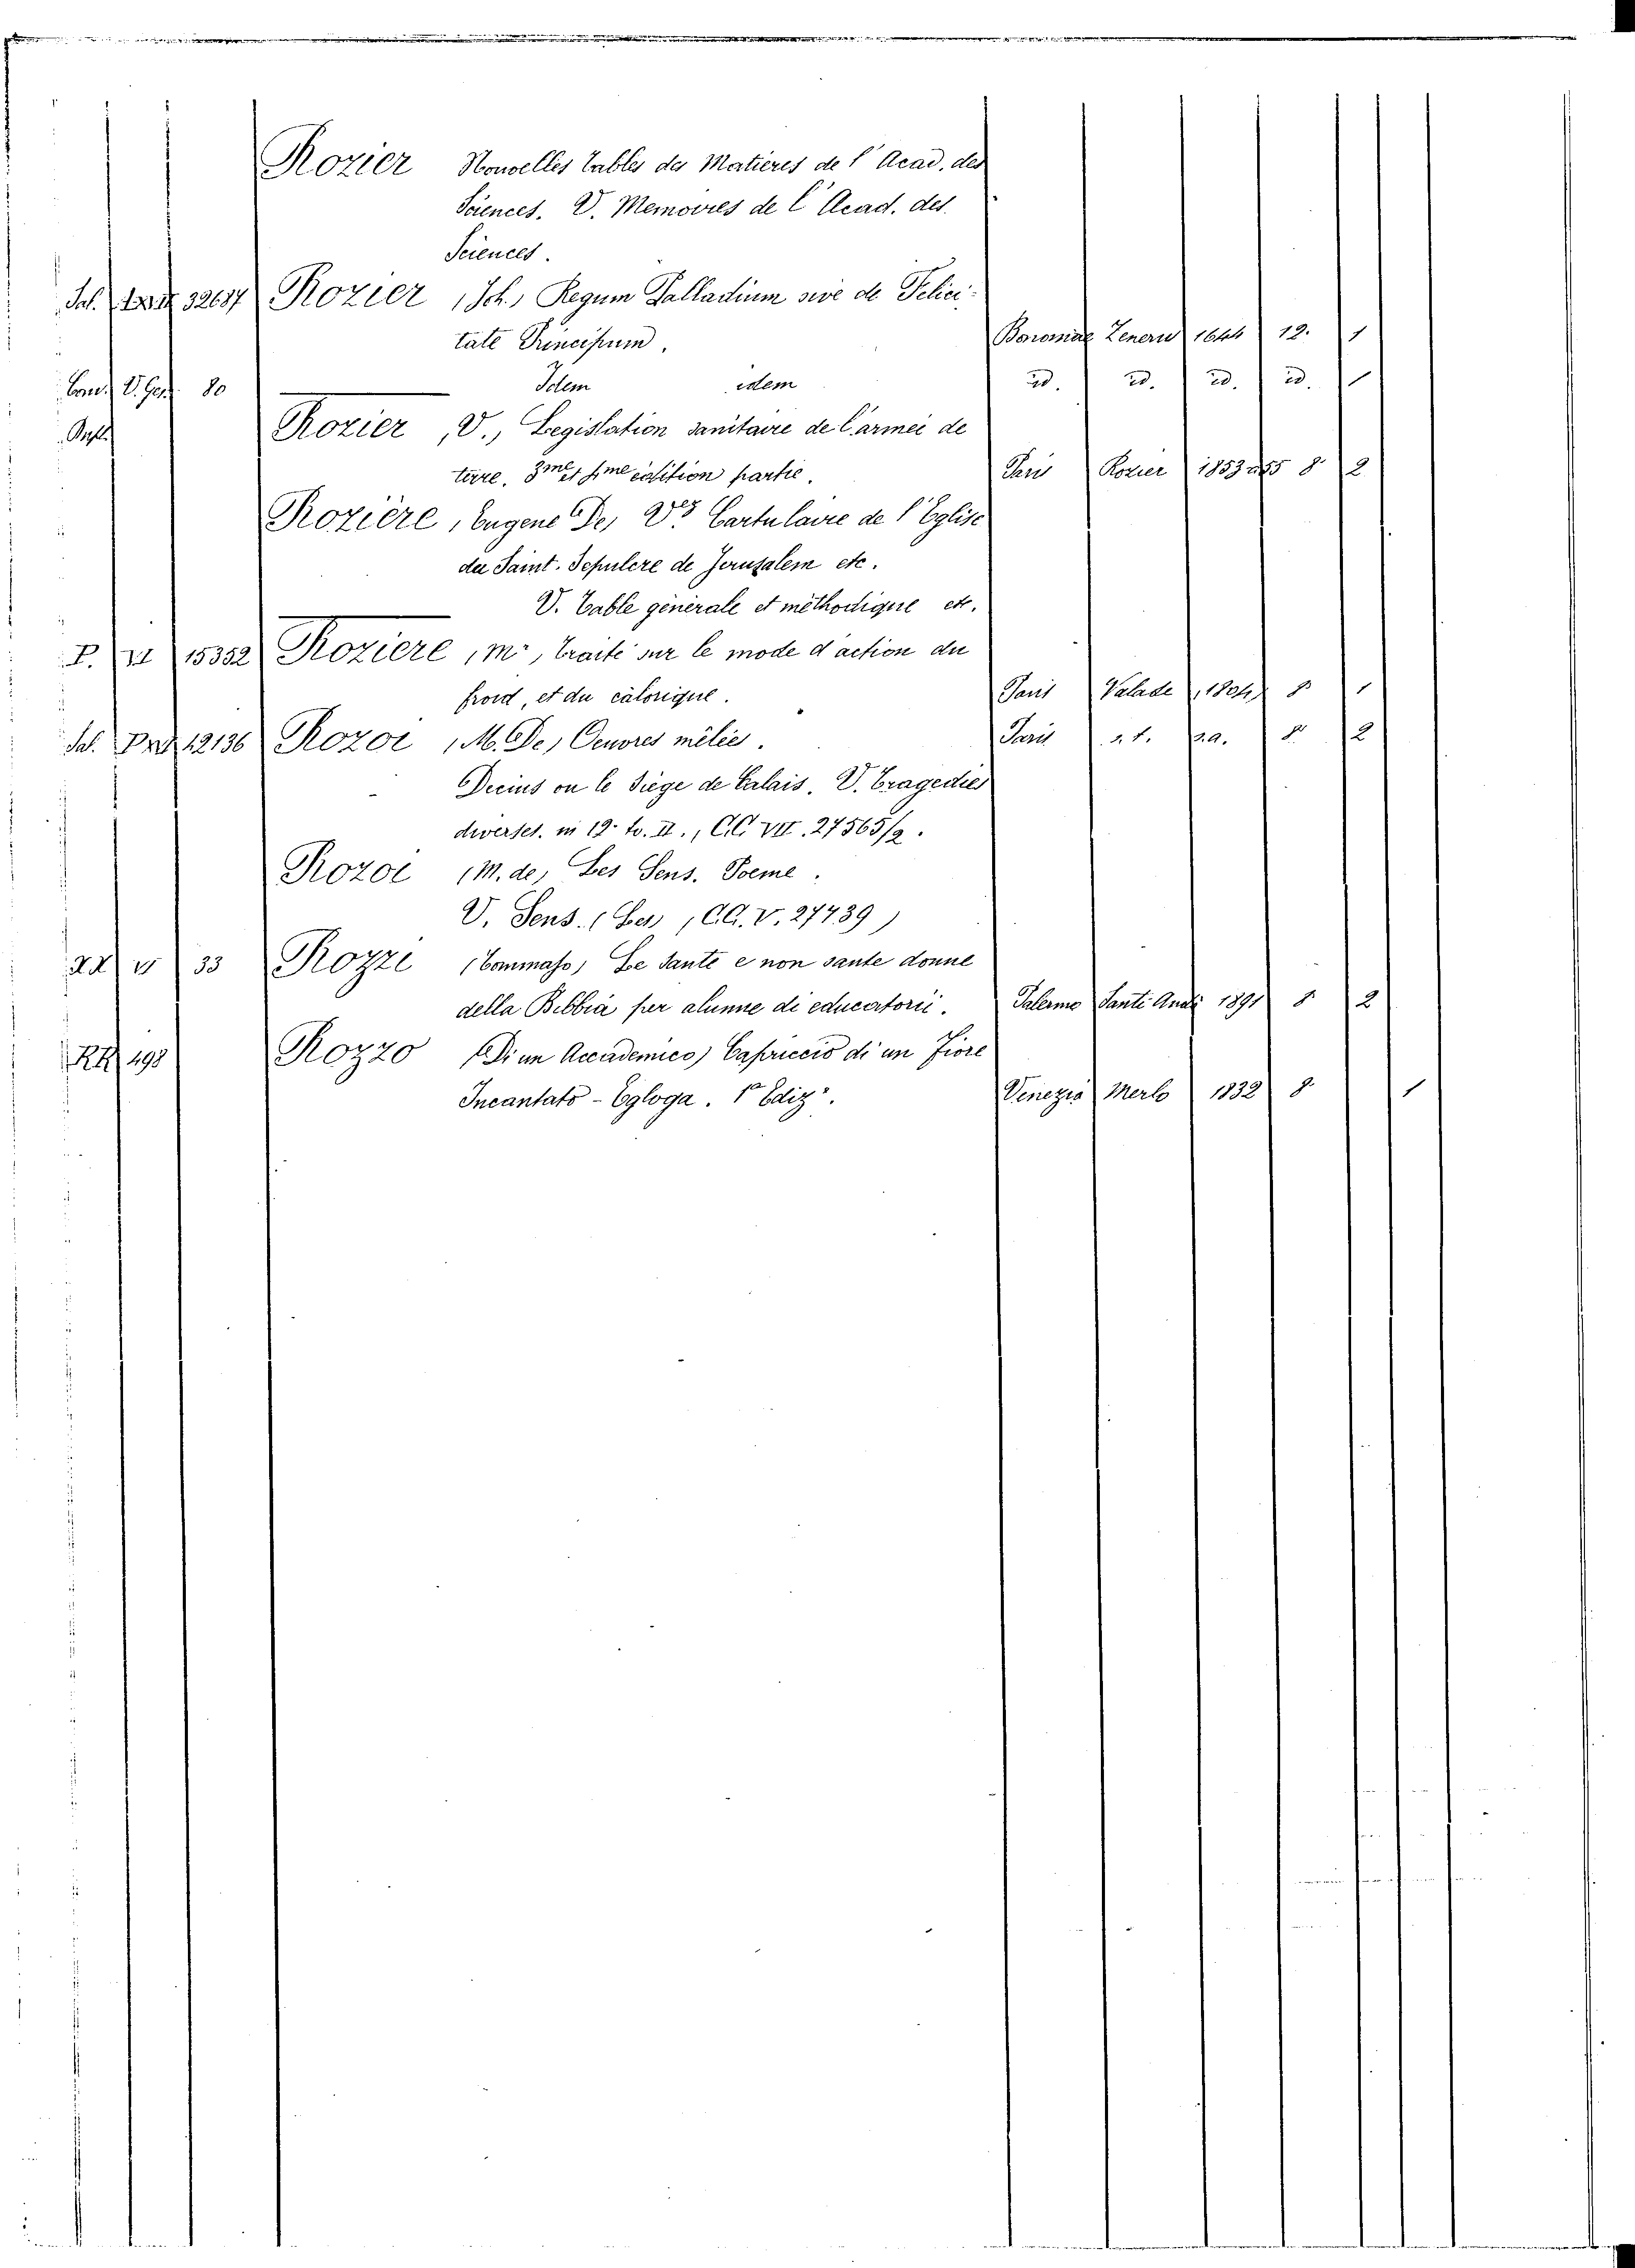 Rozier Nouvelles tables des Matieres de l'Acad. des
Sciences. V. Memoires de l'Acad. des
Sciences.
Sal. 32687 Rozier, Sch, Regum Palladium sive de Felici-
tate Principum. Zenerus 1644 12. 1
80 Idem idem id. id. id. id. 1
Rozier, V., Legislation sanitaire de l'armeé de
terre. 3me et 4me edition partie. Paris Rozier 1853 a 55 8 2
Rozière, Eugene De, Vs Cartulaire de l'Eglise
du Saint. Sepulcre de Jerusalem etc.
V. Table générale et méthodique etc.
P. VI 15352 Roziere, Mr, traité sur le mode d'action du
froid, et du calorique. Paris Valade 1804 8 1
Sal. 12136 Rozoi, M. De, Oeuvres mêlées. Paris s. t. s.a. 8 2
Decius ou le Siege de Calais. V. Tragedies
diverses. in 12. to. II., CC. VII. 27565/2.
Rozoi, M. de, Les Sens. Poeme.
V. Sens. (Les, CC. V. 27439)
33 Rozzi (Tommaso) Le Sante e non sante donne
della Bibbia per alunne di educatorii. Palermo Santi Andò 1891 8 2
RR 498 Rozzo (Di un Accademico) Capriccio di un Fiore
Incantato - Egloga. 1a Ediz. Venezia Merlo 1832 8. 1